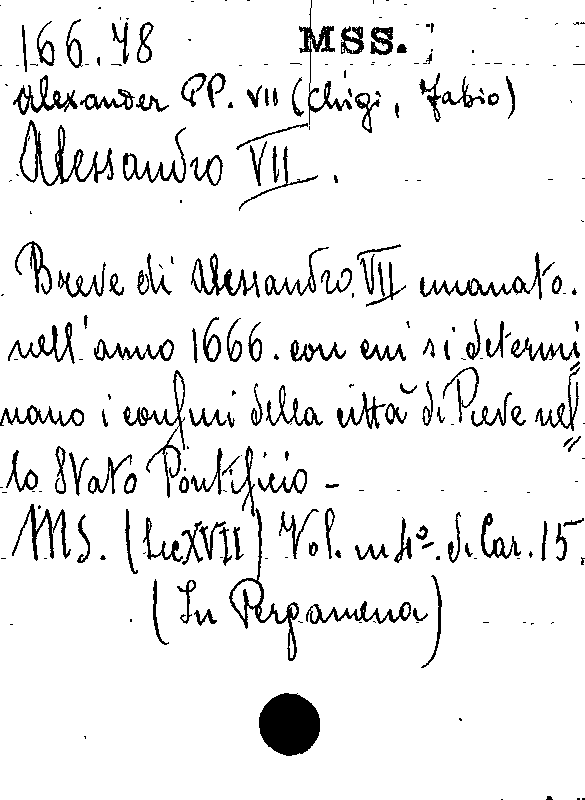 166.48 MSS.
Alexander PP. VII (Chigi, Fabio)
Alessandro VII.
Breve di Alessandro VII emanato
nell'anno 1666. con cui si determi=
nano i confini della città di Pieve nel=
lo Stato Pontificio -
MS. (Sec XVII) Vol. in 4º. di Car. 15.
(In Pergamena)